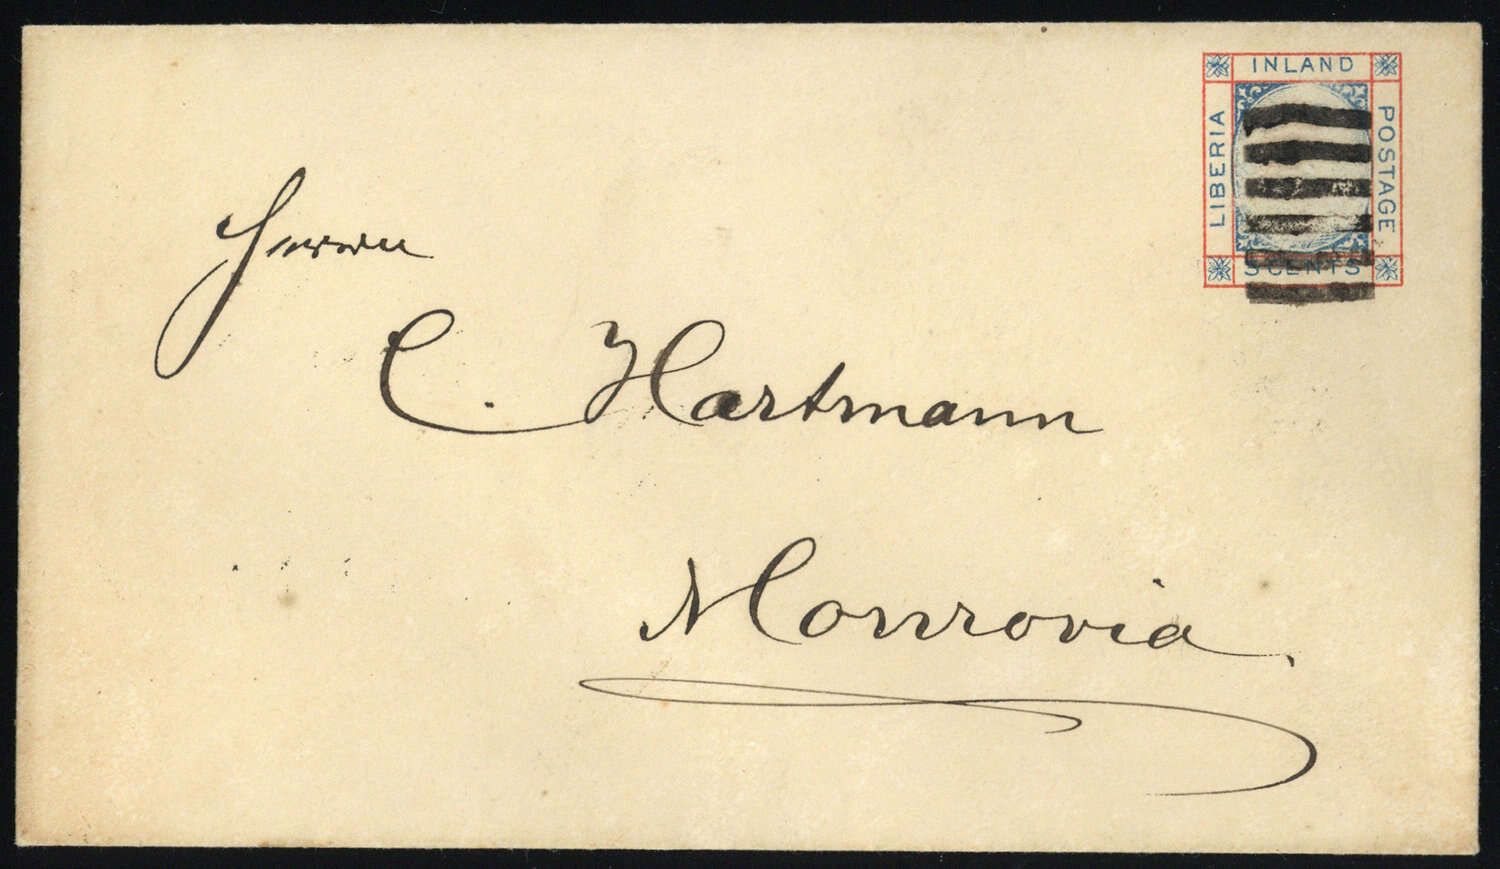 INLAND
LIBERIA
POSTAGE
3 CENTS
Herrn
C. Hartmann
Monrovia.